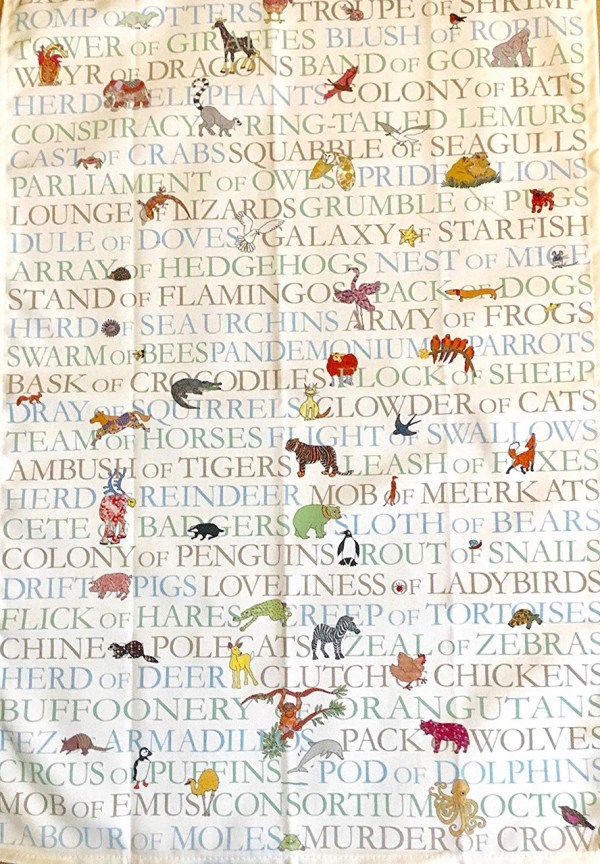 ROMP OF OTTERS TROUPE OF SHRIMP
TOWER OF GIRAFFES BLUSH OF ROBINS
WYRD DRAGONS BAND OF GORILLAS
HERD OF ELEPHANTS COLONY OF BATS
CONSPIRACY RING-TAILED LEMURS
CAST OF CRABS SQUABBLE OF SEAGULLS
PARLIAMENT OF OWLS PRIDE LIONS
LOUNGE OF LIZARDS GRUMBLE OF PUGS
DULE OF DOVES GALAXY OF STARFISH
ARRAY OF HEDGEHOGS NEST OF MICE
STAND OF FLAMINGO PACK OF DOGS
HERD OF SEA URCHINS ARMY OF FROGS
SWARM OF BEES PANDEMONIUM PARROTS
BASK OF CROCODILES FLOCK OF SHEEP
DRAY SQUIRRELS GLOWDER OF CATS
TEAM OF HORSES FLIGHT OF SWALLOWS
AMBUSH OF TIGERS LEASH OF FOXES
HERD REINDEER MOB OF MEERKATS
CETE BADGERS SLOTH OF BEARS
COLONY OF PENGUINS ROUT OF SNAILS
DRIFT PIGS LOVELINESS OF LADYBIRDS
FLICK OF HARES CREEP OF TORTOISES
CHINE POLECATS ZEAL OF ZEBRAS
HERD OF DEER CLUTCH CHICKENS
BUFFOONERY ORANGUTANS
FEZ ARMADILLOS PACK WOLVES
CIRCUS OF PUFFINS POD OF DOLPHINS
MOB OF EMUS CONSORTIUM OCTOP
LABOUR OF MOLES MURDER OF CROW